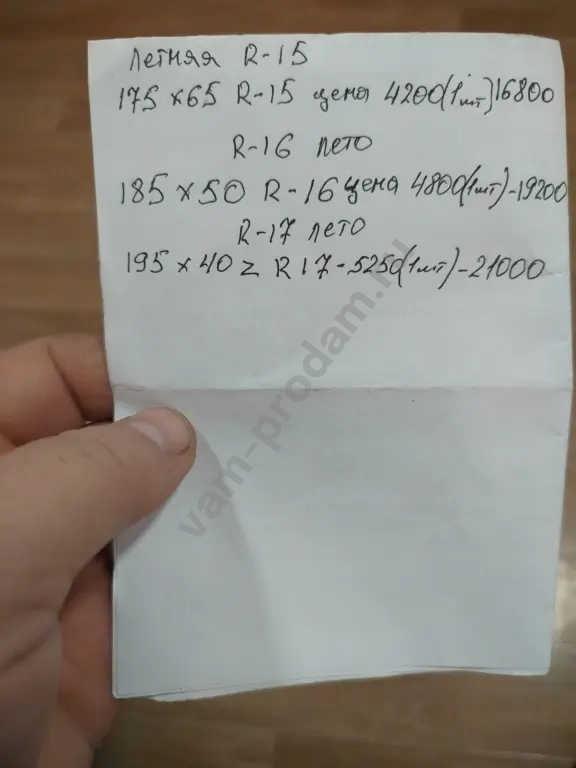 Летняя R-15
175 x 65 R-15 цена 4200(1шт)16800
R-16 лето
185 x 50 R-16 цена 4800(1шт)-19200
R-17 лето
195 x 40 z R17-5250(1шт)-21000
vam-prodam.ru